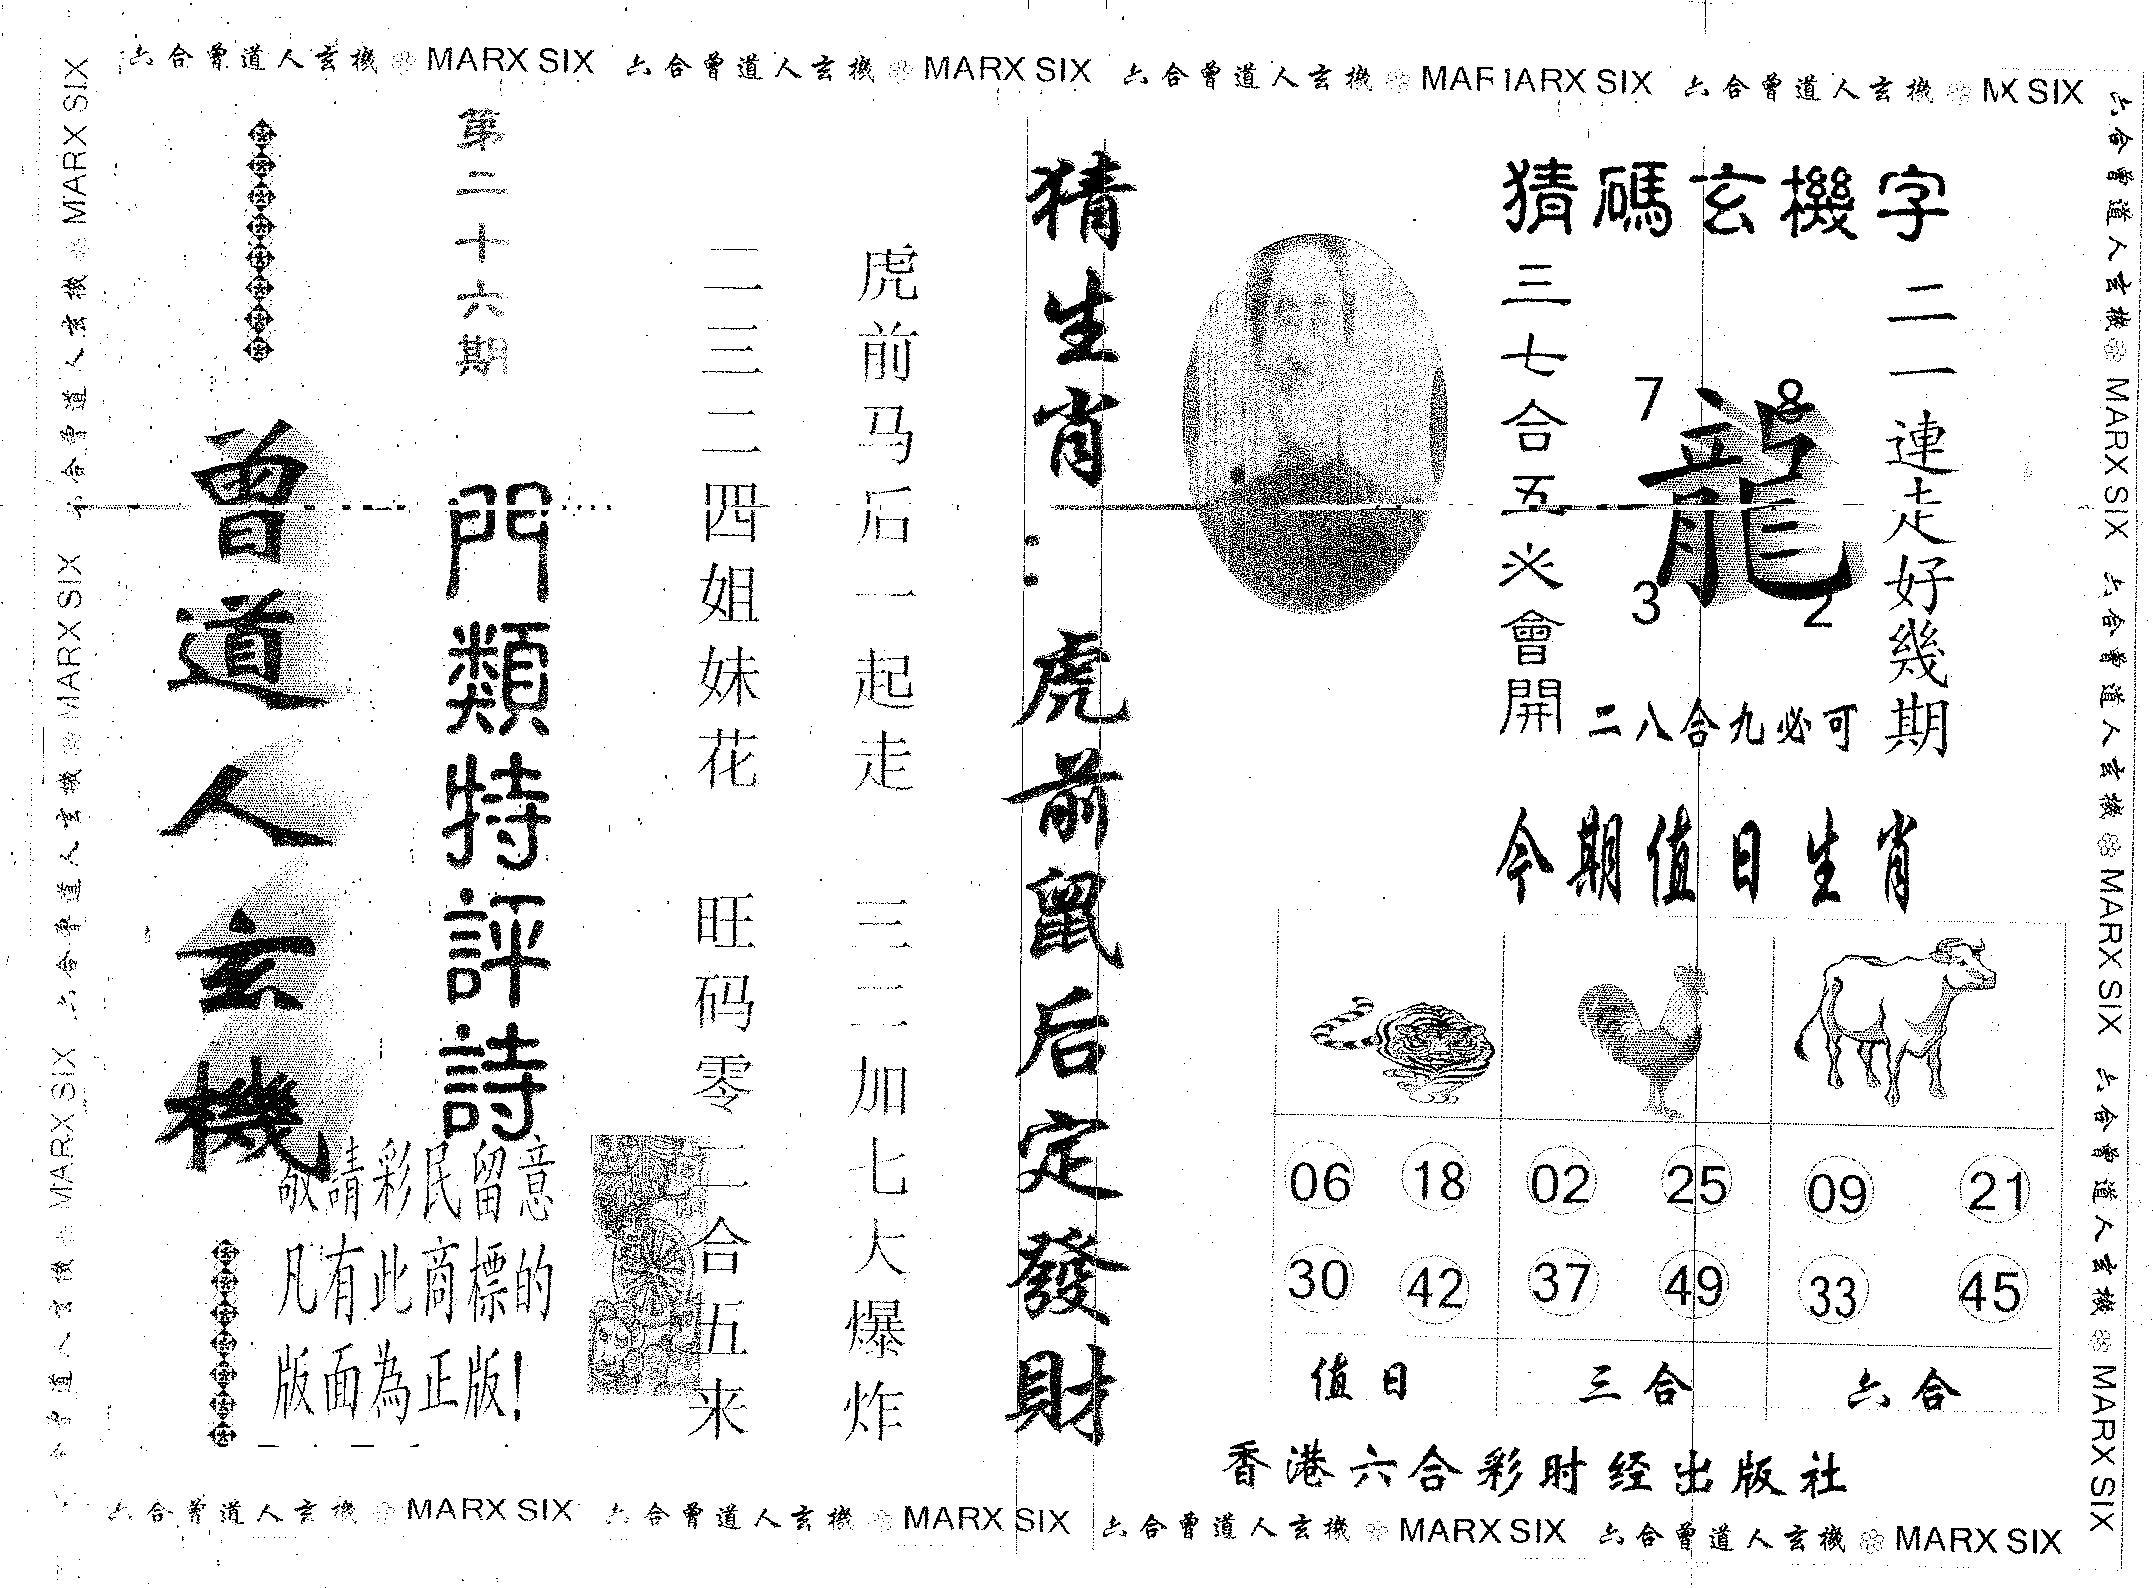 六合曾道人玄機 MARX SIX 六合曾道人玄機 MARX SIX 六合曾道人玄機 MAFIARX SIX 六合曾道人玄機 MX SIX
六合曾道人玄機 MARX SIX 六合曾道人玄機 MARX SIX 六合曾道人玄機 MARX SIX
猜碼玄機字
二一連走好幾期
龍
7
8
3
2
三七合五必會開
二八合九必可
今期值日生肖
06 18 02 25 09 21
30 42 37 49 33 45
值日 三合 六合
香港六合彩时经出版社
猜生肖:虎前鼠后定發財
虎前马后一起走 三二加七大爆炸
二三二四姐妹花 旺码零二合五来
第二十六期
門類特評詩
曾道人玄機
敬請彩民留意
凡有此商標的
版面為正版!
六合曾道人玄機 MARX SIX 六合曾道人玄機 MARX SIX 六合曾道人玄機 MARX SIX
六合曾道人玄機 MARX SIX 六合曾道人玄機 MARX SIX 六合曾道人玄機 MARX SIX 六合曾道人玄機 MARX SIX